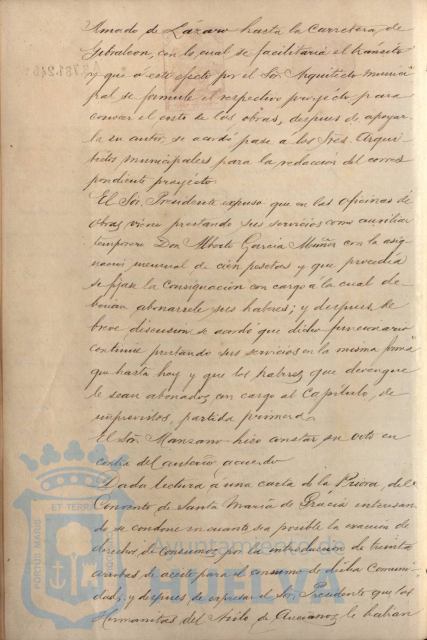 Amado de Lázaro hasta la Carretera, de
Gibraleon, con lo cual se facilitaria el tránsito
y que á este efecto por el Sor. Arquitecto munici
pal se formule el respectivo proyecto para
conocer el costo de las obras, despues de apoyar
la su autor, se acordó pase á los Sres. Arqui
tectos municipales para la redaccion del corres
pondiente proyecto.
El Sor. Presidente expuso que en las oficinas de
obras viene prestando sus servicios como auxiliar
temporero Don Alberto Garcia Muñoz con la asig
nacion mensual de cien pesetas y que procedia
se fijase la consignacion con cargo á la cual de
bian abonarsele sus haberes; y despues de
breve discusion se acordó que dicho funcionario
continue prestando sus servicios en la misma forma
que hasta hoy y que los haberes que devengue
le sean abonados con cargo al Capítulo, de
imprevistos, partida primera.
El Sor. Manzano hizo constar su voto en
contra del anterior acuerdo
Dada lectura á una carta de la Priora, del
Convento de Santa María de Gracia interesan
do se condone en cuanto sea posible la exaccion de
derechos de Consumos por la introduccion de treinta
arrobas de aceite para el consumo de dicha Comuni
dad, y despues de expresar el Sor. Presidente que las
Hermanitas del Asilo de Ancianos le habian
PORTUS MARIS ET TERRAE
Ayuntamiento de
HUELVA